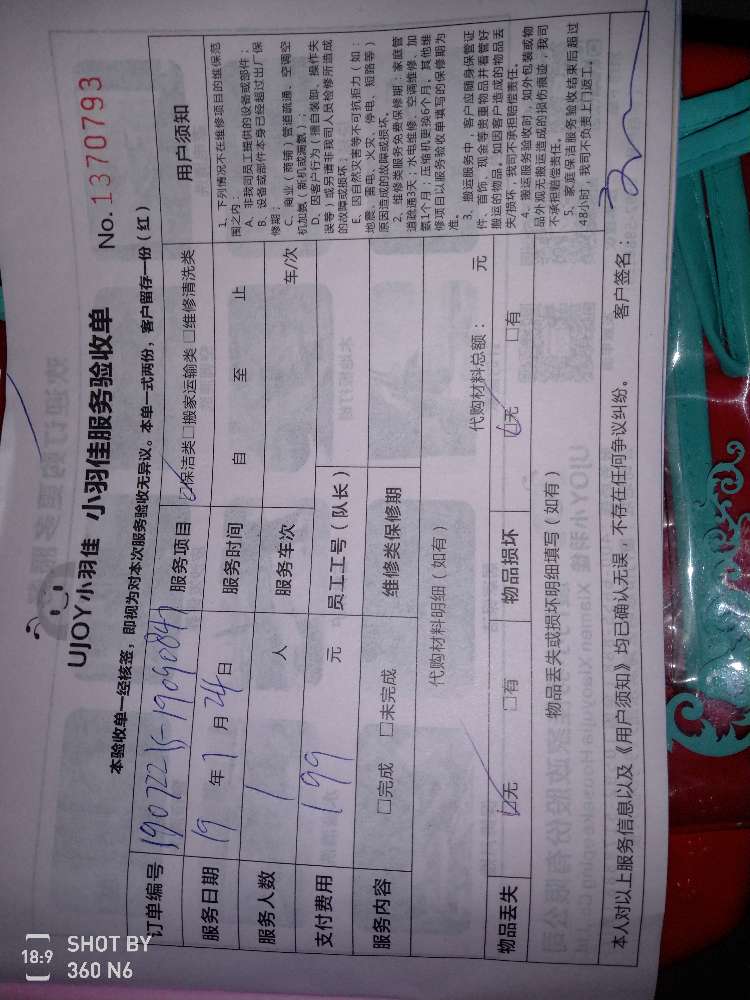 UJOY小羽佳 小羽佳服务验收单
No.1370793
本验收单一经核签，即视为对本次服务验收无异议。本单一式两份，客户留存一份（红）
订单编号 服务项目 ☑保洁类□搬家运输类 □维修清洗类
服务日期 19 年 7 月 24 日 服务时间 自 至 止
服务人数 1 人 服务车次 车/次
支付费用 199 元 员工工号（队长）
服务内容 □完成 □未完成 维修类保修期
代购材料明细（如有） 代购材料总额： 元
物品丢失 ☑无 □有 物品损坏 ☑无 □有
物品丢失或损坏明细填写（如有）
用户须知
1、下列情况不在维修项目的维保范
围之内：
A、非我司员工提供的设备或部件；
B、设备或部件本身已经超过出厂保
修期；
C、商业（商铺）管道疏通、空调空
机加氨（新机或漏氨）；
D、因客户行为（擅自装卸、操作失
误等）或另请非我司人员检修所造成
的故障或损坏；
E、因自然灾害等不可抗拒力（如：
地震、雷电、火灾、停电、短路等）
原因造成的故障或损坏。
2、维修类服务免费保修期：家庭管
道疏通3天；水电维修、空调维修、加
氨1个月；压缩机更换6个月，其他维
修项目以服务验收单填写的保修期为
准。
3、搬运服务中，客户应随身保管证
件、首饰、现金等贵重物品并看管好
搬运的物品。如因客户造成的物品丢
失/损坏，我司不承担赔偿责任。
4、搬运服务验收时，如外包装或物
品外观无搬运造成的损伤痕迹，我司
不承担赔偿责任。
5、家庭保洁服务验收结束后超过
48小时，我司不负责上门返工。
本人对以上服务信息以及《用户须知》均已确认无误，不存在任何争议纠纷。 客户签名：
18:9 SHOT BY
360 N6